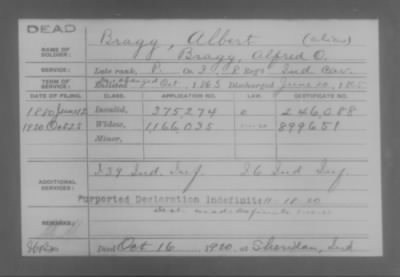 DEAD
Bragg, Albert (alias)
NAME OF SOLDIER: Bragg, Alfred O.
SERVICE: Late rank, P. Co. I, 8 Reg't Ind. Cav.
TERM OF SERVICE: Enlisted Oct , 1863 Discharged June , 1865
DATE OF FILING. CLASS. APPLICATION NO. LAW. CERTIFICATE NO.
1880 June 12 Invalid, 375274 246088
1920 Oct 25 Widow, 1,166,035 899658
Minor,
ADDITIONAL SERVICES: I 39 Ind. Inf. I 6 Ind Inf
Purported Declaration Indefinite
REMARKS:
Died Oct 16 1920, at Sheridan, Ind